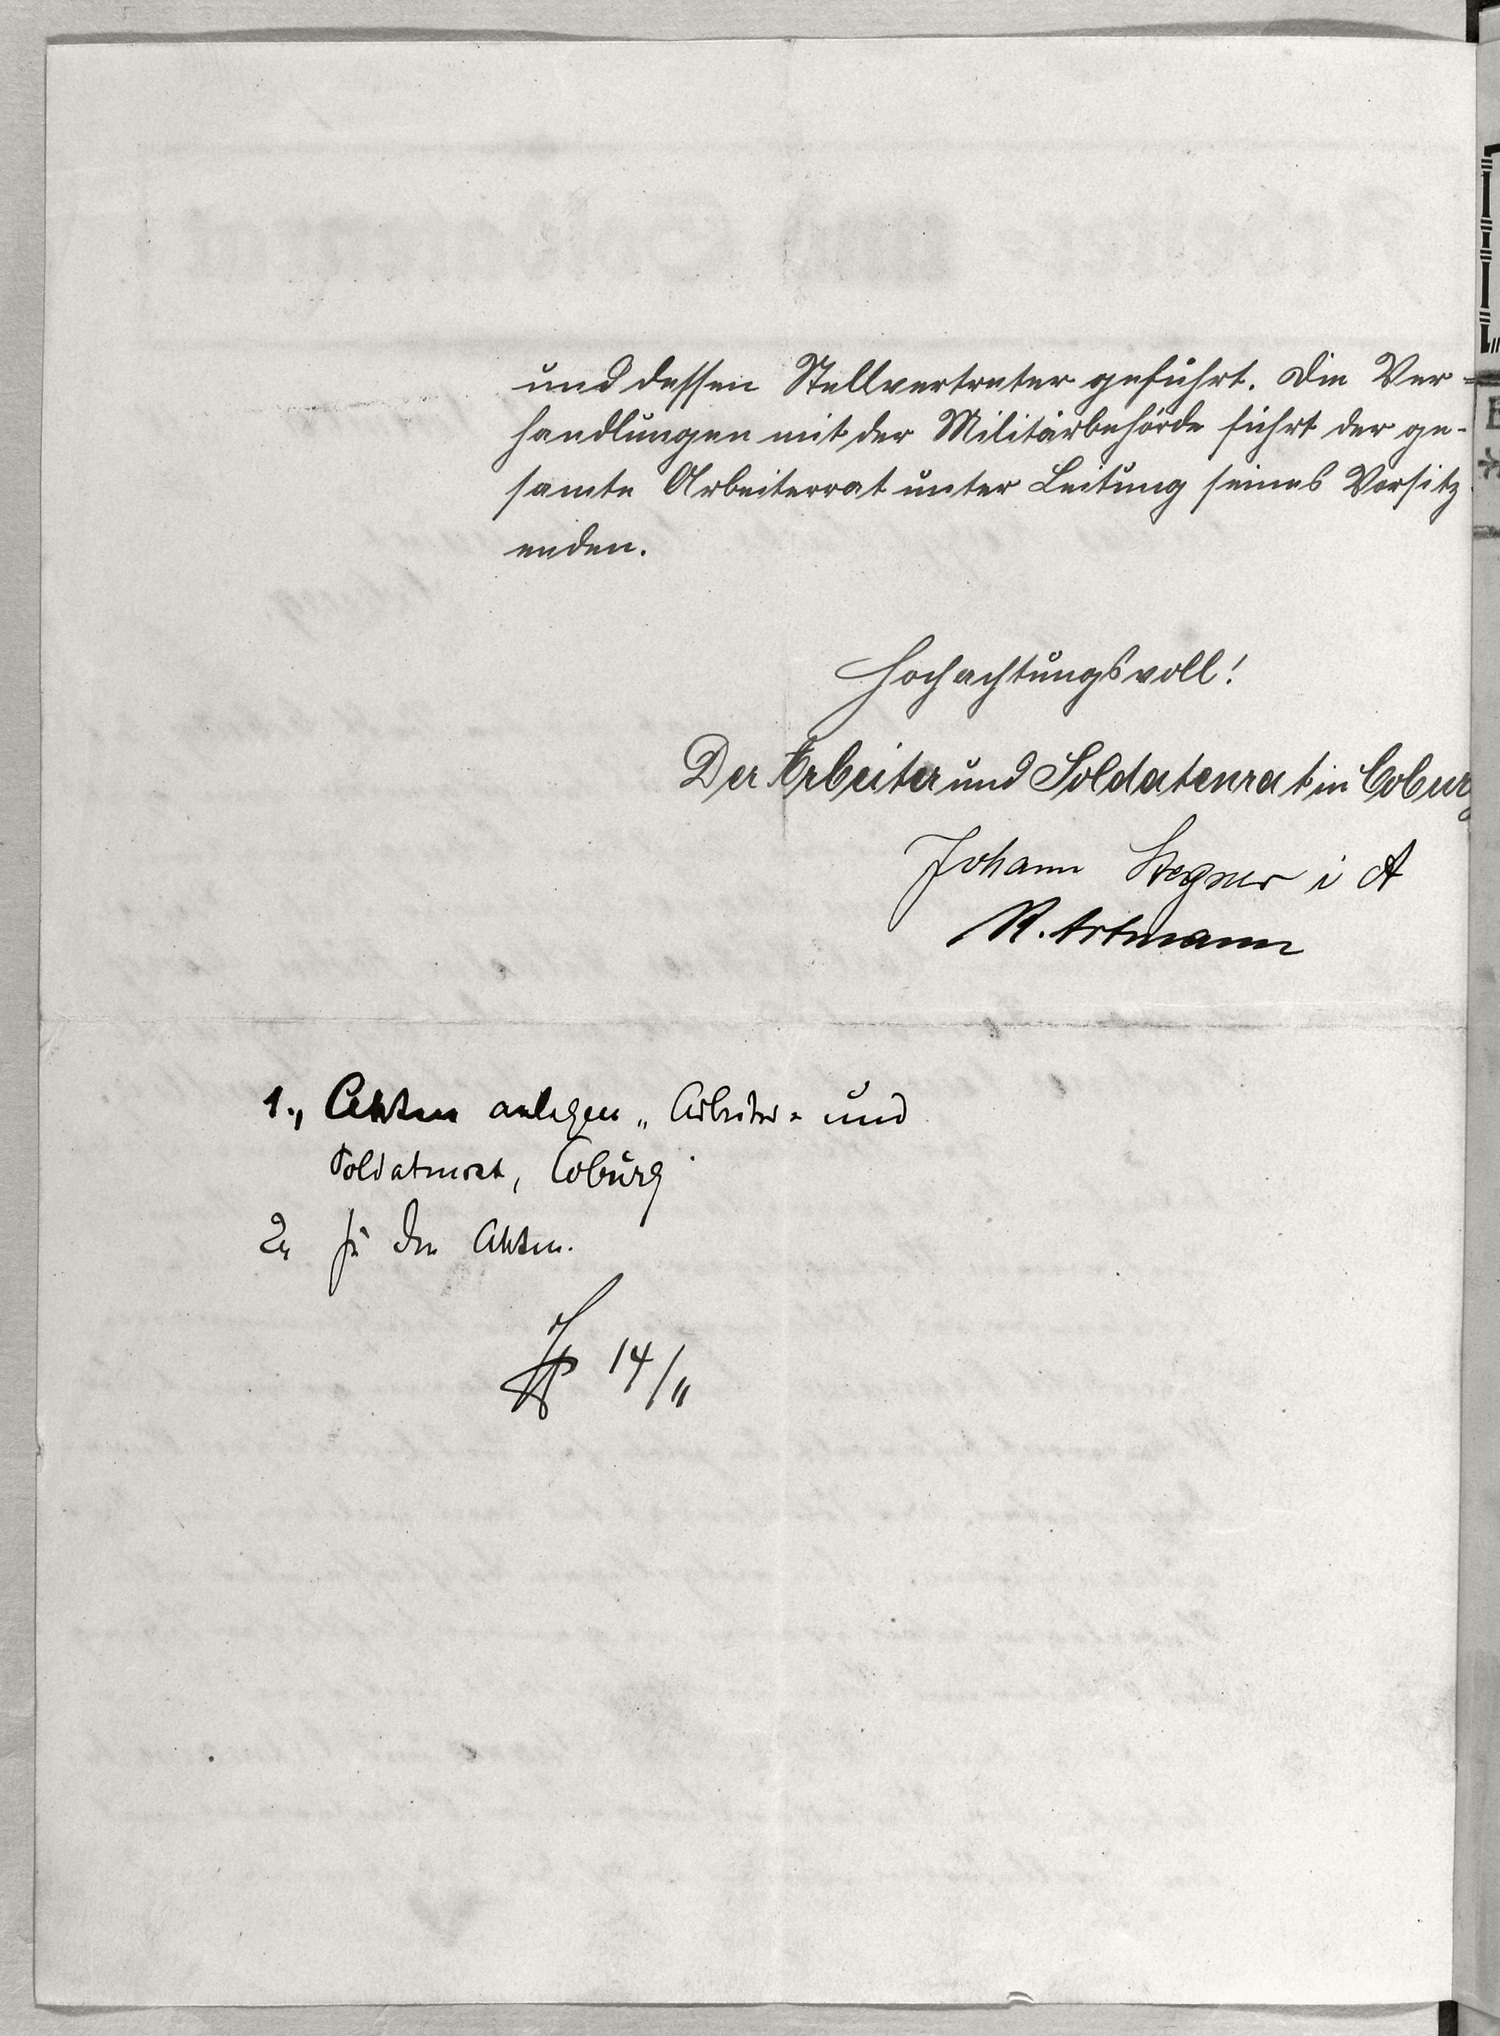 und dessen Stellvertreter geführt. Die Ver-
handlungen mit der Militärbehörde führt der ge-
samte Arbeiterrat unter Leitung seines Vorsitz
enden.
Hochachtungsvoll!
Der Arbeiter und Soldatenrat in Coburg
Johann Stegner i A
R. Artmann
1., Akten anlegen „Arbeiter- und
Soldatenrat, Coburg
2, Zu den Akten.
14/11